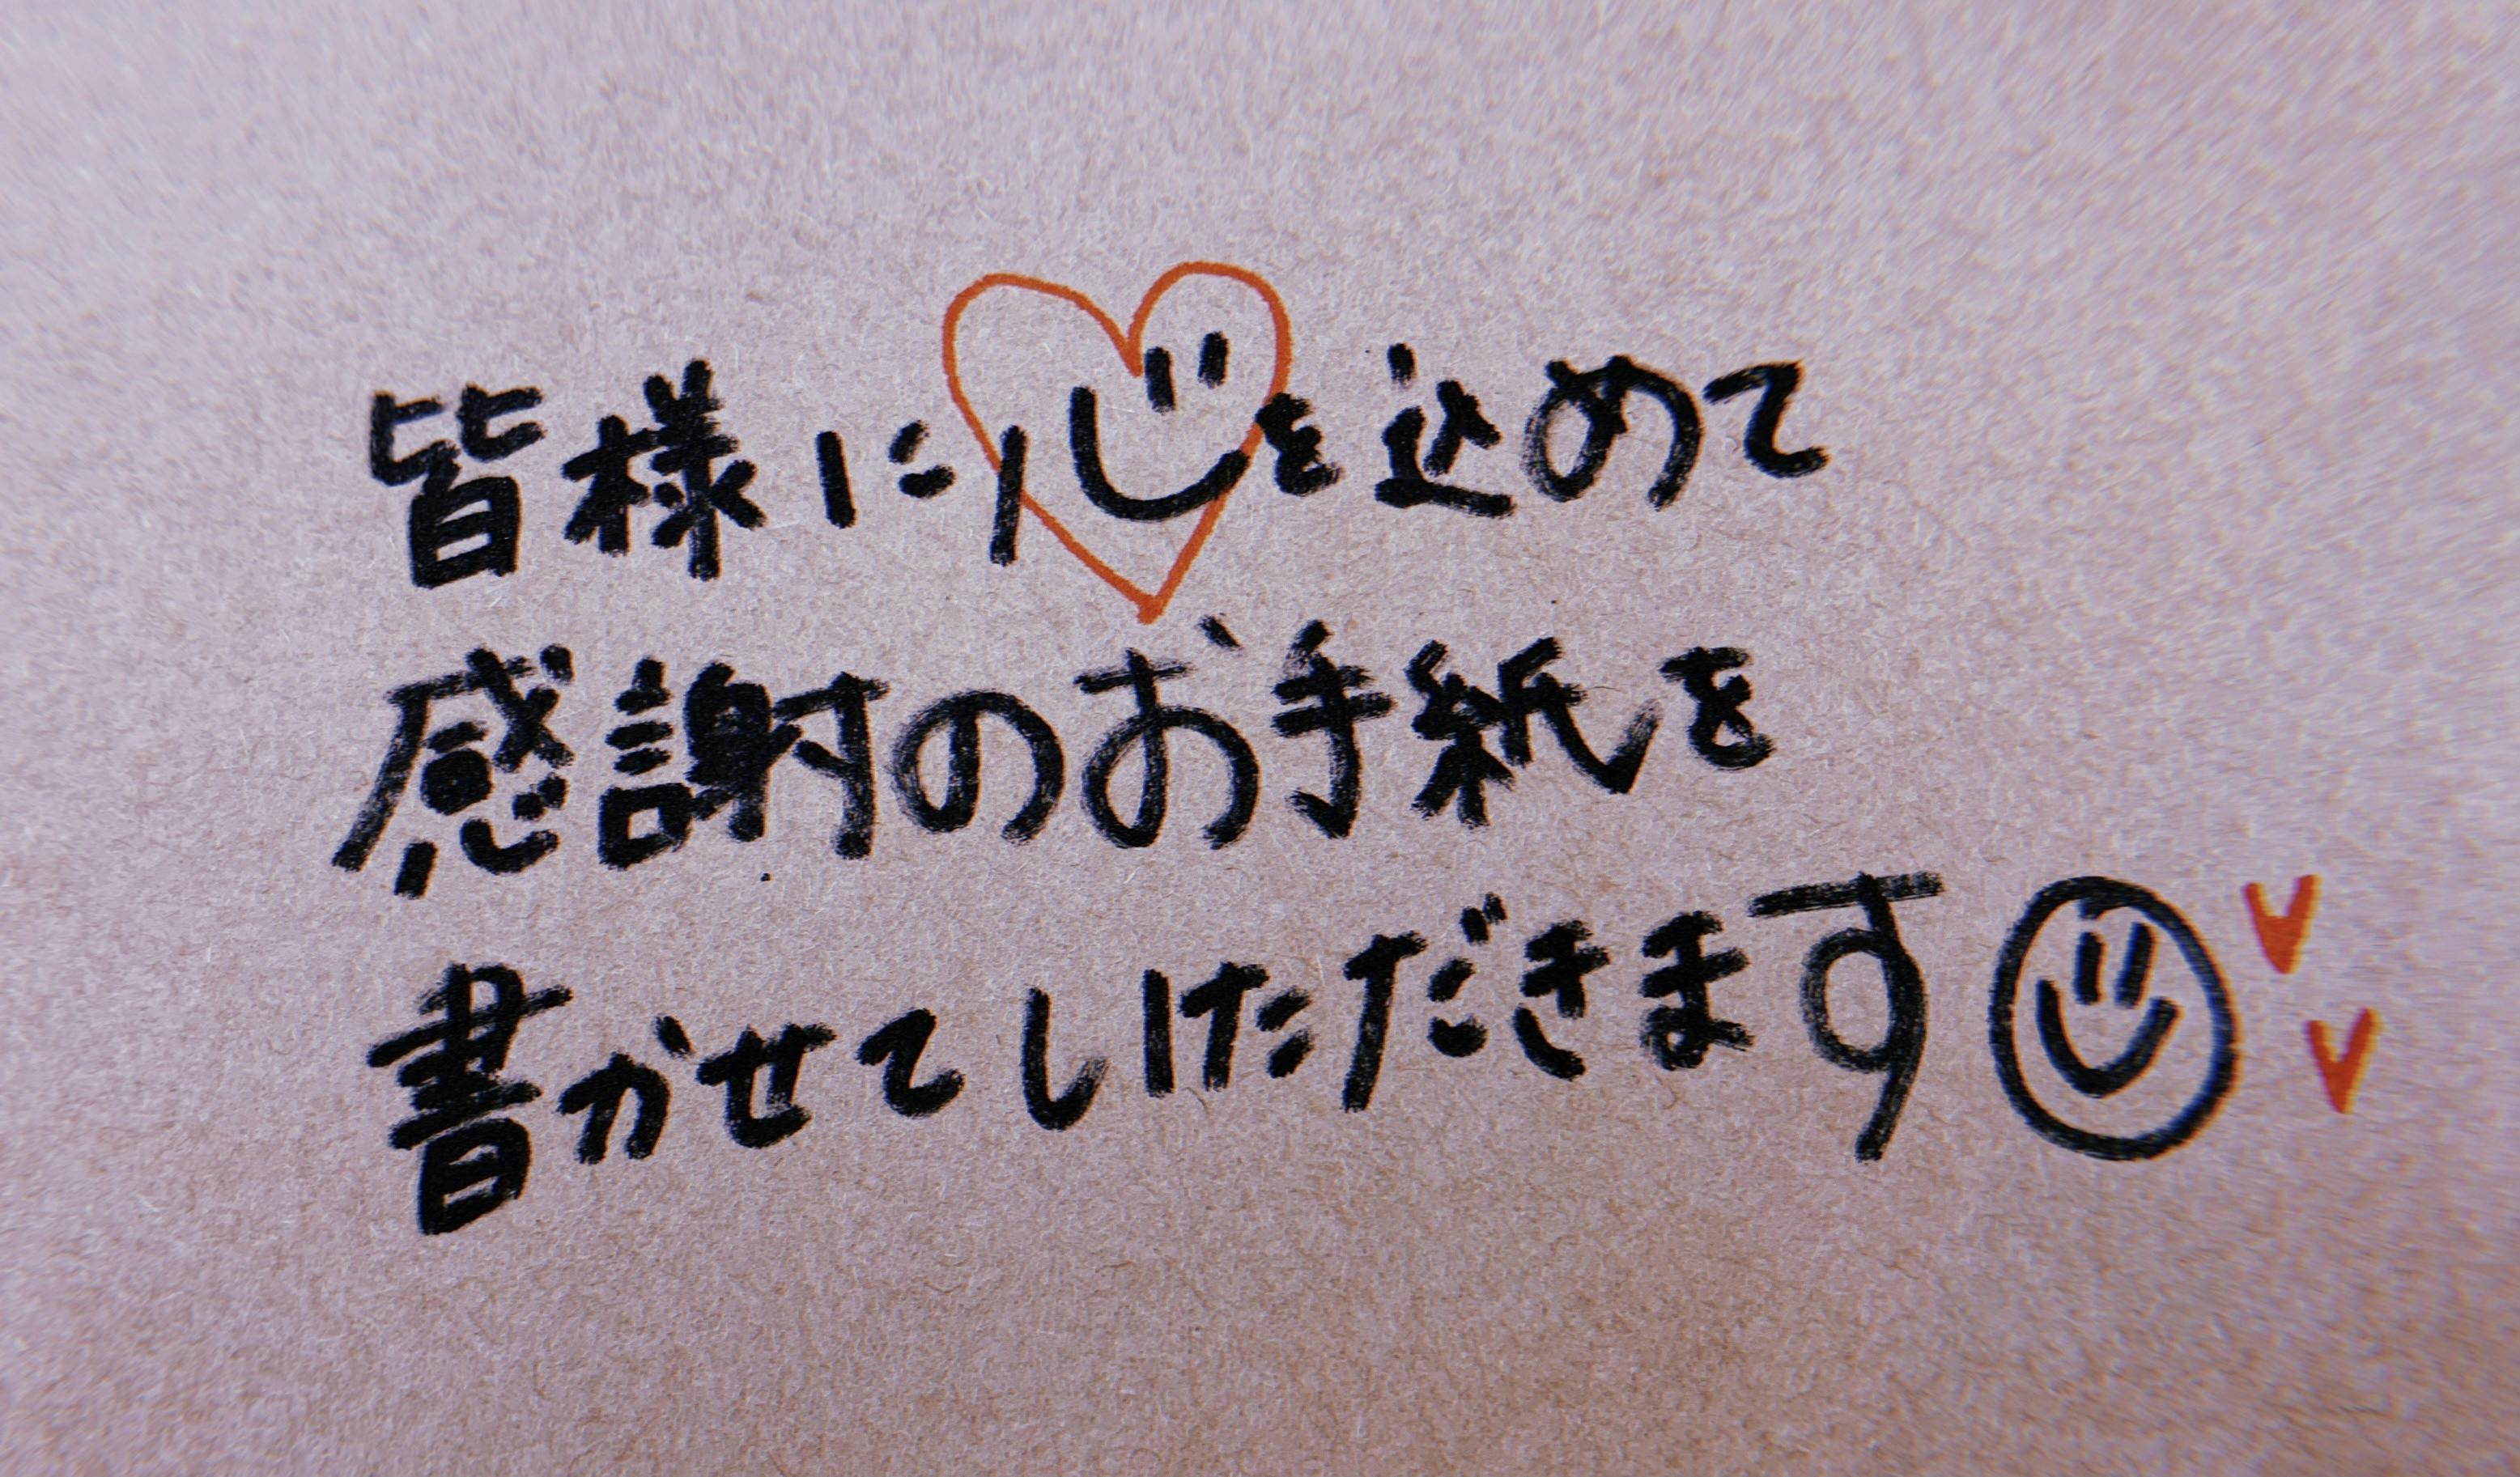 皆様に心を込めて
感謝のお手紙を
書かせていただきます